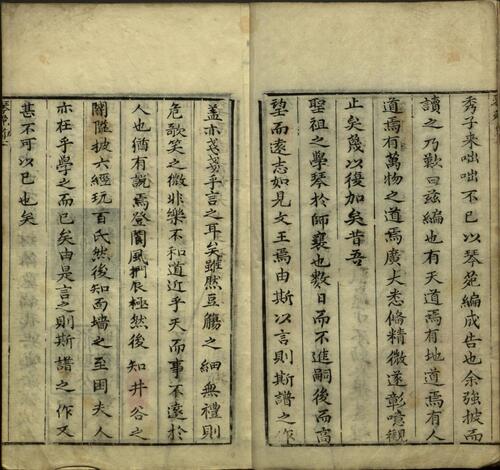 秀子来咄咄不已以琴苑編成告也余強披而
讀之乃歎曰兹編也有天道焉有地道焉有人
道焉有萬物之道焉廣大悉俻精微遂彰噫觀
止矣蔑以復加矣昔吾
聖祖之學琴於師襄也数日而不進嗣後而高
望而遠志如見文王焉由斯以言則斯譜之作
盖亦戔戔乎言之耳矣雖然豆觴之細無禮則
危歌笑之微非樂不和道近乎天而事不遠於
人也猶有説焉登閬風捫辰極然後知井谷之
闇陋披六經玩百氏然後知面墙之至困夫人
亦在乎學之而已矣由是言之則斯譜之作又
甚不可以已也矣